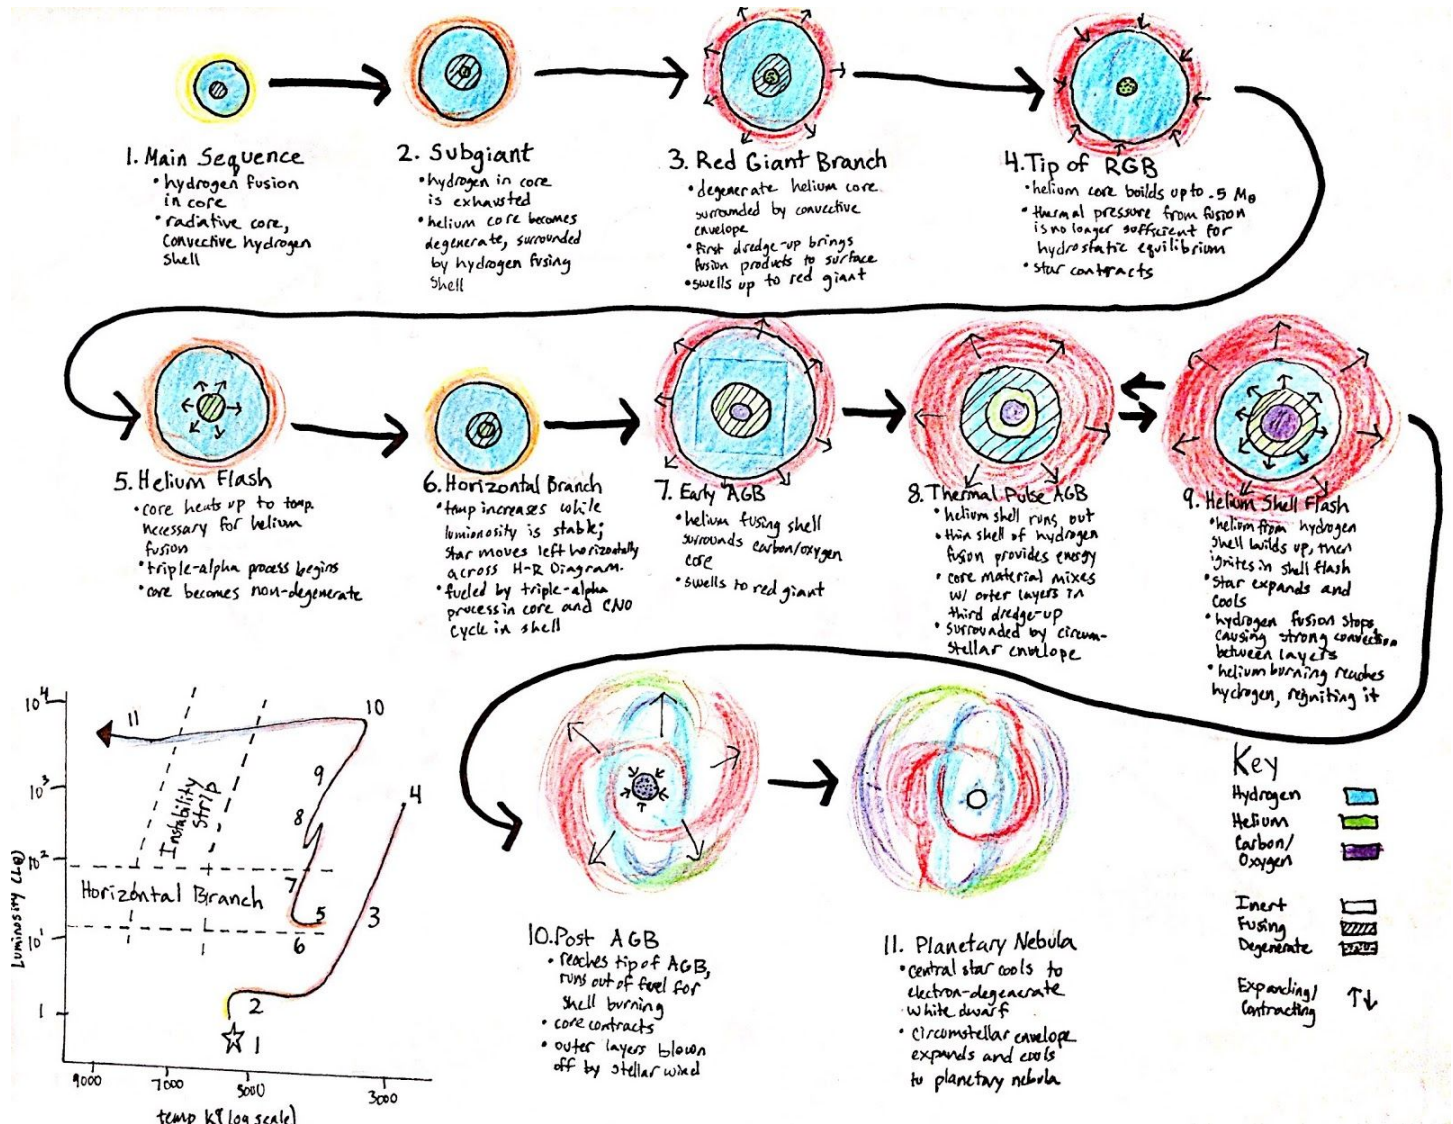 1. Main Sequence
• hydrogen fusion
in core
• radiative core,
convective hydrogen
shell
2. Subgiant
• hydrogen in core
is exhausted
• helium core becomes
degenerate, surrounded
by hydrogen fusing
shell
3. Red Giant Branch
• degenerate helium core
surrounded by convective
envelope
• first dredge-up brings
fusion products to surface
• swells up to red giant
4. Tip of RGB
• helium core builds up to .5 M⊙
• thermal pressure from fusion
is no longer sufficient for
hydrostatic equilibrium
• star contracts
5. Helium Flash
• core heats up to temp.
necessary for helium
fusion
• triple-alpha process begins
• core becomes non-degenerate
6. Horizontal Branch
• temp increases while
luminosity is stable;
star moves left horizontally
across H-R Diagram.
• fueled by triple-alpha
process in core and CNO
cycle in shell
7. Early AGB
• helium fusing shell
surrounds carbon/oxygen
core
• swells to red giant
8. Thermal Pulse AGB
• helium shell runs out
• thin shell of hydrogen
fusion provides energy
• core material mixes
w/ outer layers in
third dredge-up
• surrounded by circum-
stellar envelope
9. Helium Shell Flash
• helium from hydrogen
shell builds up, then
ignites in shell flash
• star expands and
cools
• hydrogen fusion stops,
causing strong convection
between layers
• helium burning reaches
hydrogen, reigniting it
10. Post AGB
• reaches tip of AGB,
runs out of fuel for
shell burning
• core contracts
• outer layers blown
off by stellar wind
11. Planetary Nebula
• central star cools to
electron-degenerate
white dwarf
• circumstellar envelope
expands and cools
to planetary nebula
Luminosity (L⊙)
10⁴
10³
10²
10¹
1
11
10
9
4
8
7
3
5
6
2
1
Instability
Strip
Horizontal Branch
9000
7000
5000
3000
temp K° (log scale)
Key
Hydrogen
Helium
Carbon/
Oxygen
Inert
Fusing
Degenerate
Expanding/
Contracting